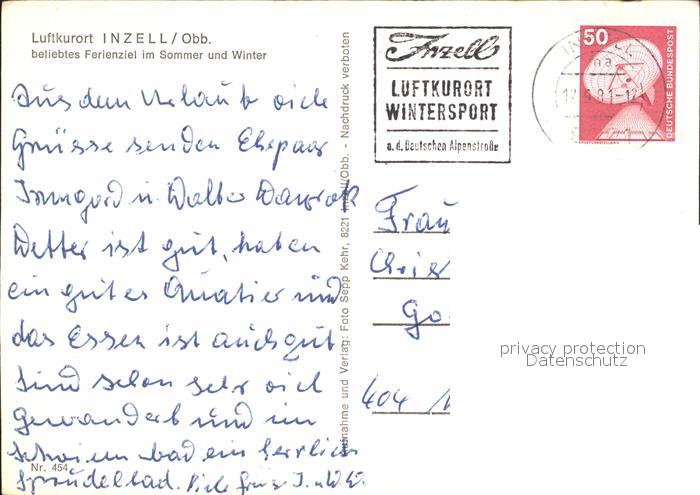 Luftkurort INZELL/Obb.
beliebtes Ferienziel im Sommer und Winter
Aus dem Urlaub viele
Grüsse senden Ehepaar
Irmgard u. Walter
Wetter ist gut, haben
ein gutes Quatier und
das Essen ist auch gut
Sind schon sehr viel
gewandert und im
Schwimmbad ein herrlich
Sprudelbad. Viele Grüsse I. u. W.
Nr. 454
Aufnahme und Verlag: Foto Sepp Kehr, 8221 Inzell/Obb. - Nachdruck verboten
Inzell
LUFTKURORT
WINTERSPORT
a. d. Deutschen Alpenstraße
50
DEUTSCHE BUNDESPOST
Frau
Chris
Go
404
privacy protection
Datenschutz